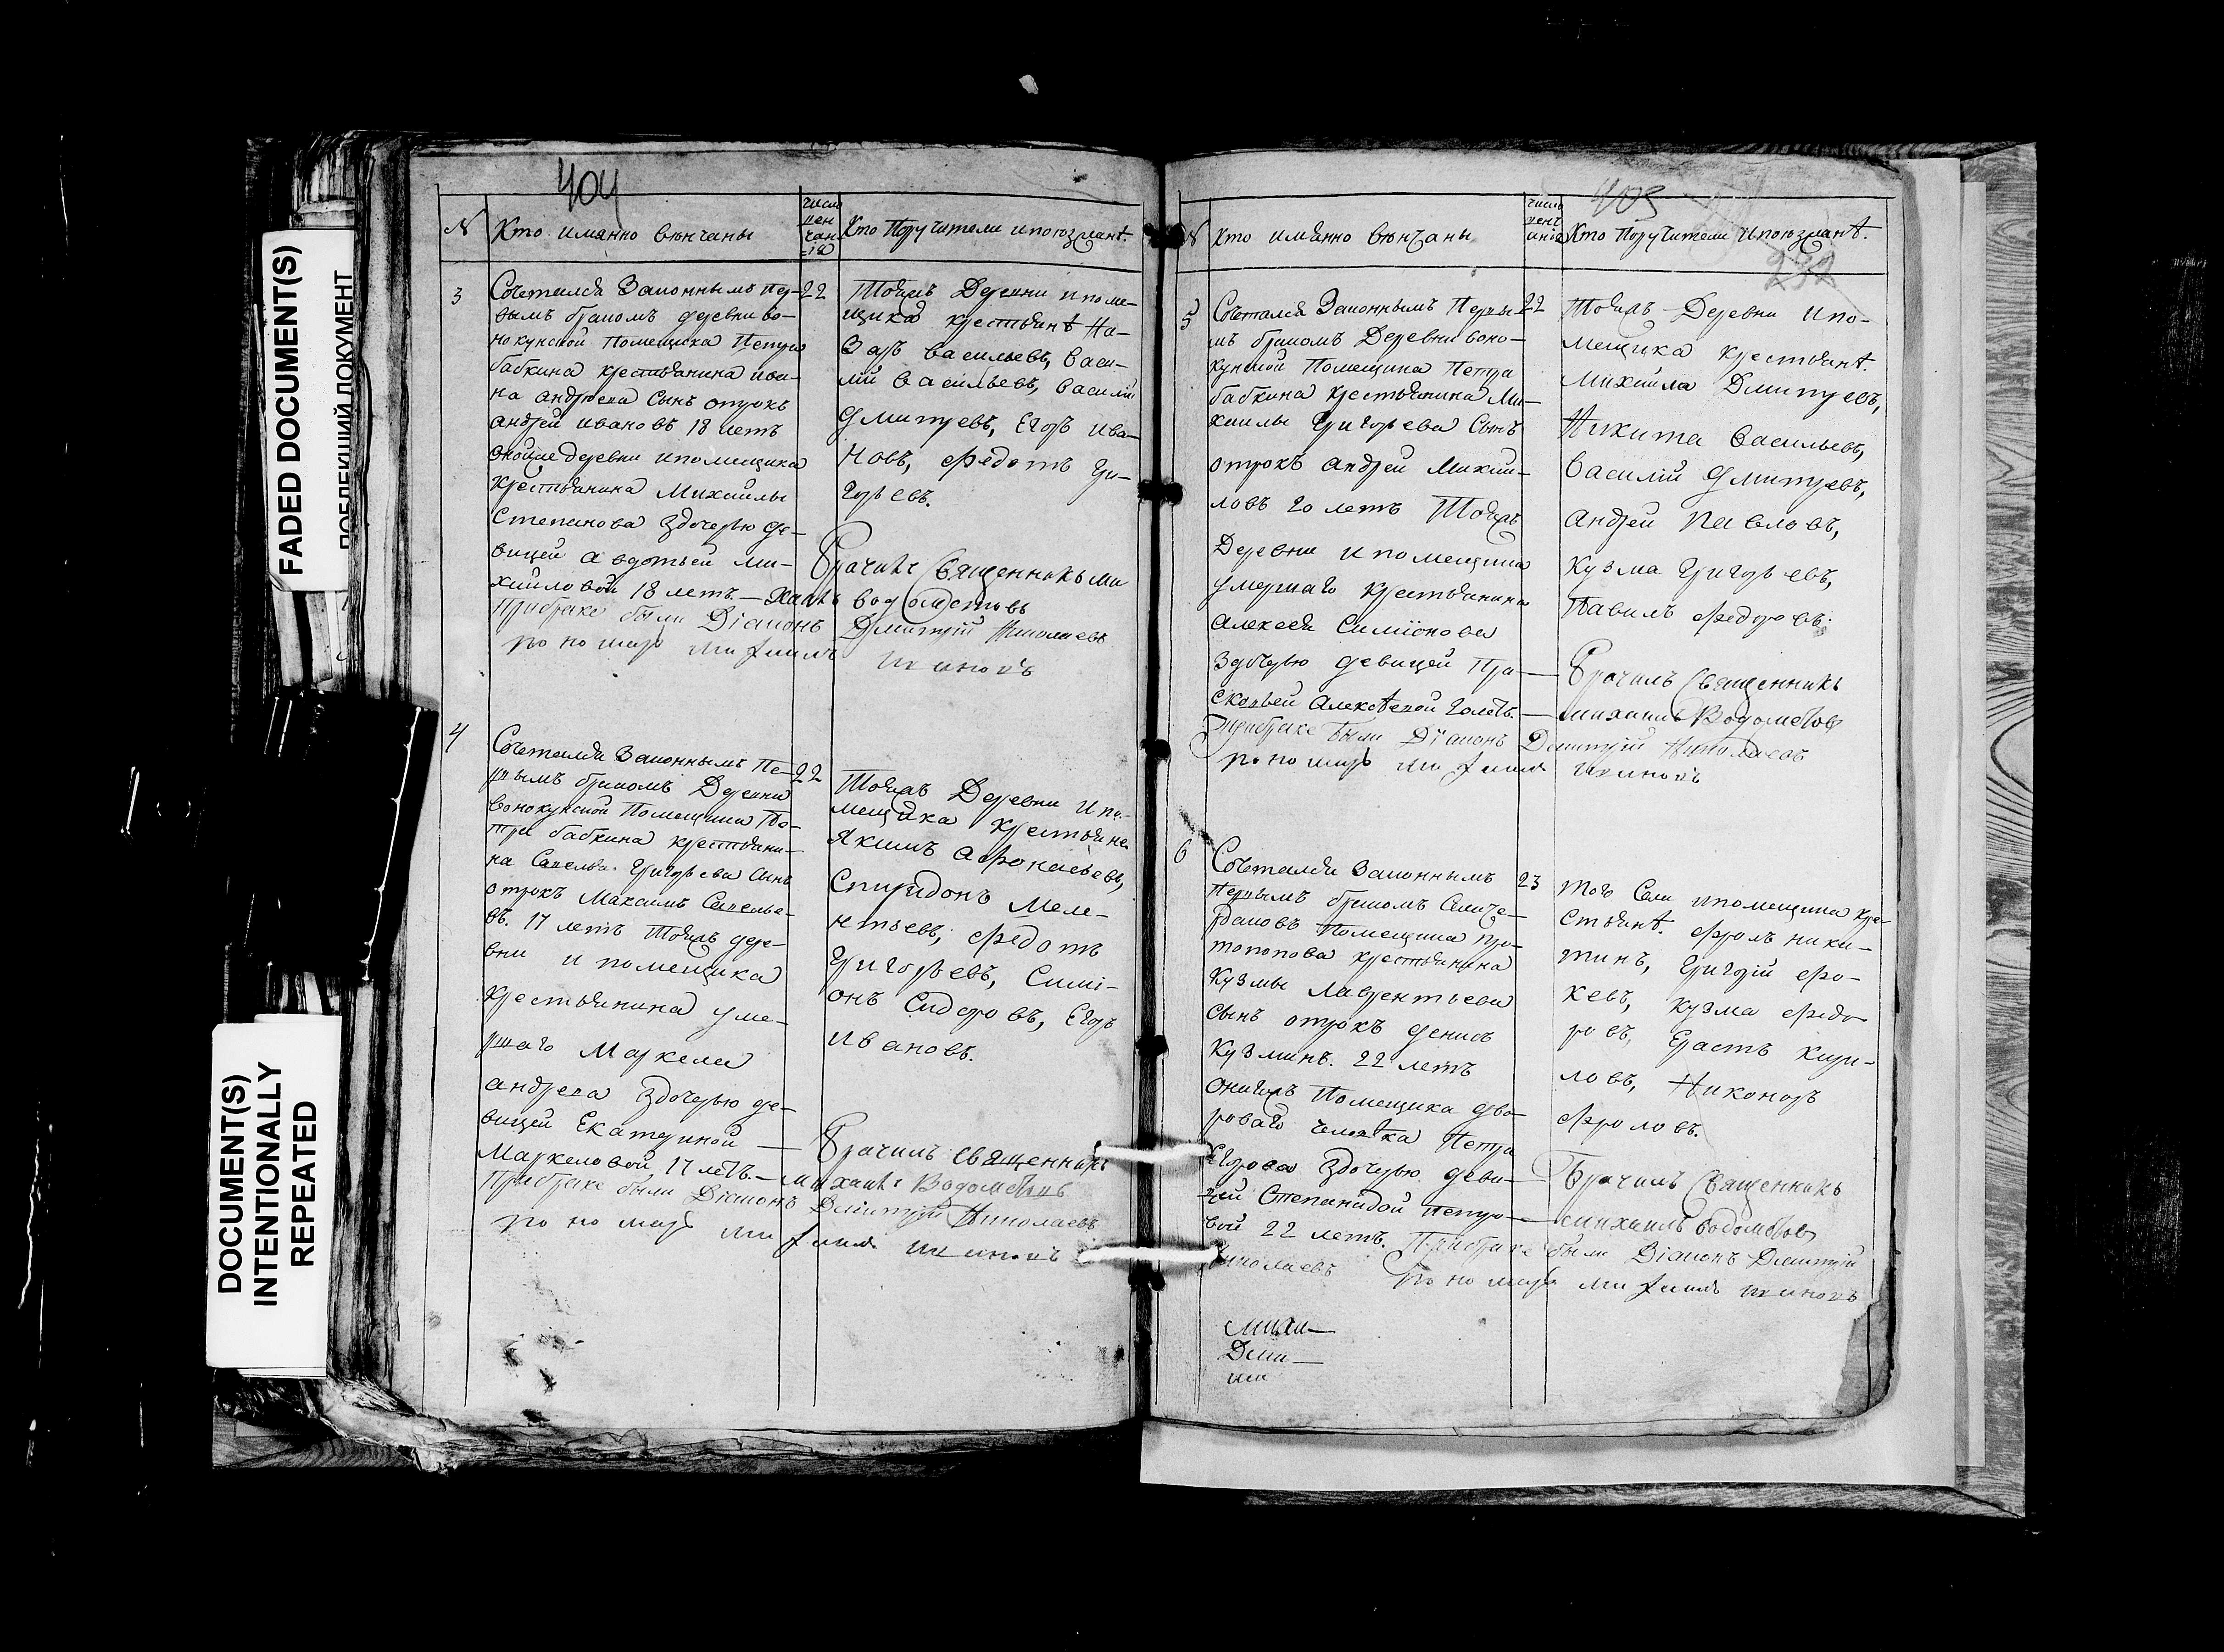 FADED DOCUMENT(S)
DOCUMENT(S)
INTENTIONALLY
REPEATED
404
№
Кто имянно венчаны
число
вен
чан
iя
Кто Поручители и поюзжанѣ.
3
Сочетался Законнымъ пер-
вымъ бракомъ деревни во-
нокунской Помещика Петра
бабкина крестьянина ива-
на андреева Сынъ отрокъ
андрей ивановъ 18 летъ
оной же деревни и помещика
крестьянина Михайлы
Степанова здочерью де-
вицей авдотьей ми-
хайловой 18 летъ.
22
Тойжъ Деревни и поме-
щика крестьянѣ На-
заръ васильевъ, васи-
лий васильевъ, василий
дмитревъ, Егоръ ива-
новъ, федотъ гри-
горьевъ.
Брачилъ Священникъ ми
хаилъ водомѣтовъ
При браке были Дiаконъ Дмитрiй Николаевъ
4
Сочетался Законнымъ Пе-
рвымъ бракомъ Деревни
вонокунской Помещика Пе-
тра бабкина крестьяни-
на Савелья Григорьева Сынъ
отрокъ Максимъ Савелье-
въ 17 летъ Тойжъ дере-
вни и помещика
крестьянина уме-
ршаго Маркела
андреева здочерью де-
вицей Екатериной
Маркеловой 17 летъ.
22
Тойжъ Деревни и по-
мещика крестьяне
Якимъ афонасьевъ,
Спиридонъ Меле-
нтьевъ, федотъ
Григорьевъ, Симi-
онъ Сидоровъ, Егоръ
ивановъ.
Брачилъ священникъ
михаилъ Водомѣтовъ
При браке были Дiаконъ Дмитрiй Николаевъ
405
232
№
Кто имянно вѣнчаны
число
Кто Поручители и поюзжанѣ.
5
Сочетался Законнымъ Первы-
мъ бракомъ Деревни воно-
кунской Помещика Петра
бабкина крестьянина Ми-
хаилы Григорьева Сынъ
отрокъ андрей Михай-
ловъ 20 летъ Тойжъ
Деревни и помещика
умершаго крестьянина
Алексея Симiонова
здочерью девицей Пра-
сковьей Алексѣевой 20 летъ.
22
Тойжъ Деревни и по-
мещика крестьянѣ.
Михайла Дмитревъ,
Никита васильевъ,
василiй дмитревъ,
андрей павловъ,
кузма григорьевъ,
Павилъ федоровъ.
Брачилъ Священникъ
михаилъ Водомѣтовъ
При браке были Дiаконъ Дмитрiй Николаевъ
6
Сочетался Законнымъ
Первымъ бракомъ
Помещика Про-
топопова крестьянина
Кузмы лаврентьева
сынъ отрокъ денисъ
Кузминъ. 22 летъ
Помещика дво-
роваго человѣка Петра
Егорова здочерью деви-
цей Степанидой Петро-
вой 22 летъ. При браке были Дiаконъ Дмитрiй
Николаевъ
23
того Села и помещика кре-
стьянѣ. фролъ ники-
тинъ, григорiй фо-
кевъ, кузма федо-
ровъ, Ерастъ кири-
ловъ, Никоноръ
фроловъ.
Брачилъ Священникъ
михаилъ водомѣтовъ
михи
Дми